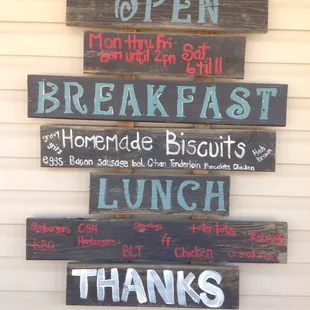 OPEN
Mon thru Fri Sat
6am until 2pm 6 till 11
BREAKFAST
gravy grits Homemade Biscuits Hash Brown
eggs Bacon Sausage bol. Chan Tenderloin Pancakes Chicken
LUNCH
CSH tater tots
BBQ Hamburgers BLT FF Chicken
THANKS